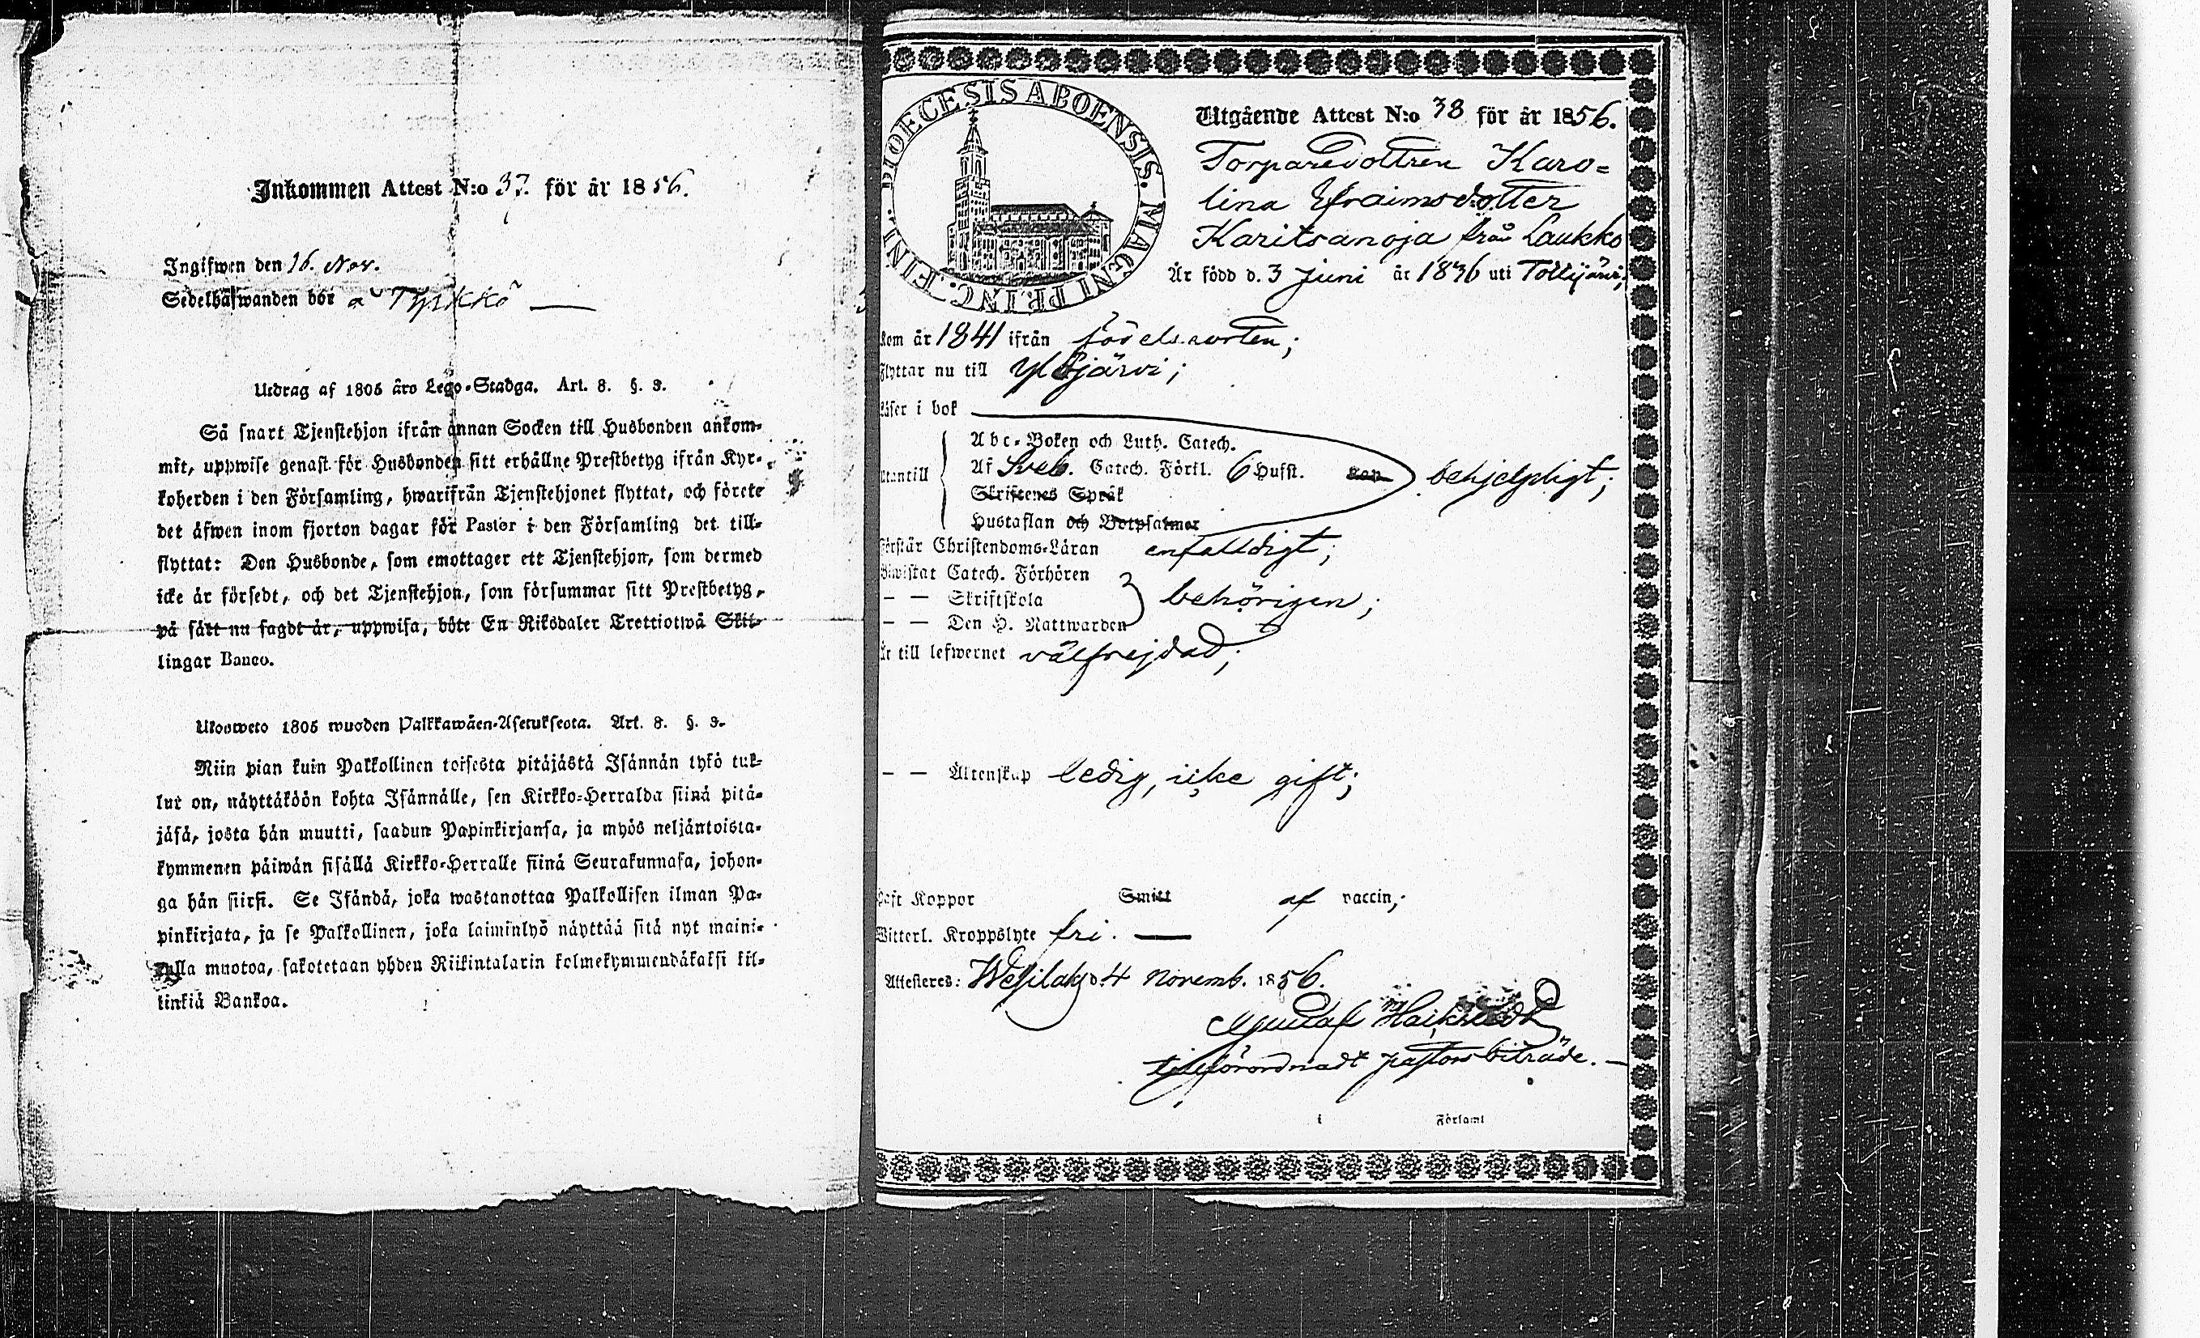 Inkommen Attest N:o 37. för år 1856.
Ingifwen den 16. Nov.
Sedelhafwanden bor å Tyrkkö
Utdrag af 1805 års Lego-Stadga. Art. 8. §. 3.
Så snart Tjenstehjon ifrån annan Socken till Husbonden ankom-
mit, uppwise genast för Husbonden sitt erhållne Prestbetyg ifrån Kyr-
koherden i den Församling, hwarifrån Tjenstehjonet flyttat, och förete
det äfwen inom fjorton dagar för Pastor i den Församling det till-
flyttat: Den Husbonde, som emottager ett Tjenstehjon, som dermed
icke är försedt, och det Tjenstehjon, som försummar sitt Prestbetyg,
på sätt nu sagdt är, uppwisa, böte En Riksdaler Trettiotwå Skil-
lingar Banco.
Ulosweto 1805 wuoden Palkkawäen-Asetuksesta. Art. 8. §. 3.
Niin pian kuin Palkollinen toisesta pitäjästä Isännän tykö tul-
lut on, näyttäköön kohta Isännälle, sen Kirkko-Herralda siinä pitä-
jäsä, josta hän muutti, saadun Papinkirjansa, ja myös neljäntoista-
kymmenen päiwän sisällä Kirkko-Herralle siinä Seurakunnasa, johon-
ga hän siirsi. Se Isändä, joka wastanottaa Palkollisen ilman Pa-
pinkirjata, ja se Palkollinen, joka laiminlyö näyttää sitä nyt maini-
tulla muotoa, sakotetaan yhden Riikintalarin kolmekymmendäkaksi kil-
linkiä Bankoa.
DIOECESIS ABOENSIS. MAGNI PRINC. FINL.
Utgående Attest N:o 38 för år 1856.
Torparedottren Karo=
lina Efraimsdotter
Karitsanoja från Laukko
Är född d. 3 Juni år 1836 uti Tottijärvi;
kom år 1841 ifrån födelseorten;
flyttar nu till Ylöjärvi;
Läser i bok
Abc-Boken och Luth. Catech.
Utantill Af Sveb. Catech. Förkl. 6 Hufst. behjelpligt;
Skriftenes Språk
Hustaflan och Botpsalmer
Förstår Christendoms-Läran enfaldigt;
Bewistat Catech. Förhören
— — Skriftskola behörigen;
— — Den H. Nattwarden
Är till lefwernet välfrejdad;
— — Äktenskap ledig, icke gift;
Haft Koppor Smitt af vaccin;
Witterl. Kroppslyte fri.
Attesteres: Wesilaks d. 4 Novemb. 1856.
Gustaf
tillförordnadt pastorsbiträde.
i Församl